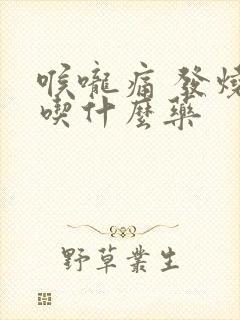 喉嚨痛 發燒
喫什麼藥
野草叢生